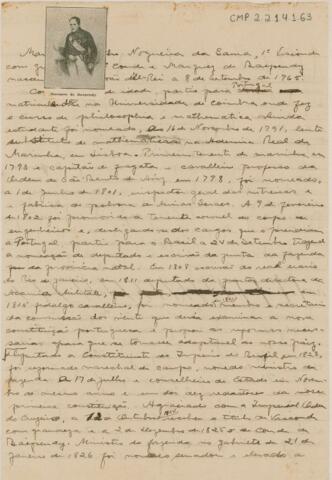 CMP 2.2.14.1.63
Marquez de Baependy
Nogueira da Gama, 1º Visconde
com Conde e Marquez de Baependy
nasceu d'El-Rei a 8 de Setembro de 1765.
de idade, partio para Portugal
na Universidade de Coimbra onde fez
o curso de philosophia e mathematica. Ainda
estudante foi nomeado, a 16 de Novembro de 1791, lente
substituto de mathematicas na Academia Real de
Marinha, em Lisboa. Primeiro tenente de marinha em
1793 e capitão de fragata, e cavalleiro professo da
Ordem de São Bento de Aviz, em 1798, foi nomeado,
a 1 de Junho de 1801, inspector geral das nitreiras e
fabrica de polvora de Minas Geraes. A 9 de fevereiro
de 1802 foi promovido a tenente coronel do corpo de
engenheiros e, desligando-se dos cargos que o prendiam
a Portugal, partio para o Brasil a 24 de Setembro
a nomeação de deputado e escrivão da junta da fazenda
de sua provincia natal. Em 1808 escrivão do real erario
do Rio de Janeiro, em 1811 deputado da junta directora da
Academia Militar,
fidalgo cavalleiro, foi nomeado membro e secretario
da commissão dos vinte que devia examinar a nova
constituição portugueza e propor as reformas necessarias
para que se tornasse adoptavel ao nosso paiz.
Deputado a Constituinte do Imperio do Brasil em 1823,
foi reformado marechal de campo, nomeado ministro da
fazenda a 17 de Julho e conselheiro de Estado em Novembro
do mesmo anno e um dos dez redactores da nossa
primeira constituição. Agraciado com a Imperial Ordem
do Cruzeiro, a 12 de Outubro 1824 recebe o titulo de Visconde
com grandeza e a 2 de Dezembro de 1825 o de Conde de
Baependy. Ministro da fazenda no gabinete de 21 de
Janeiro de 1826 foi nomeado senador e elevado a